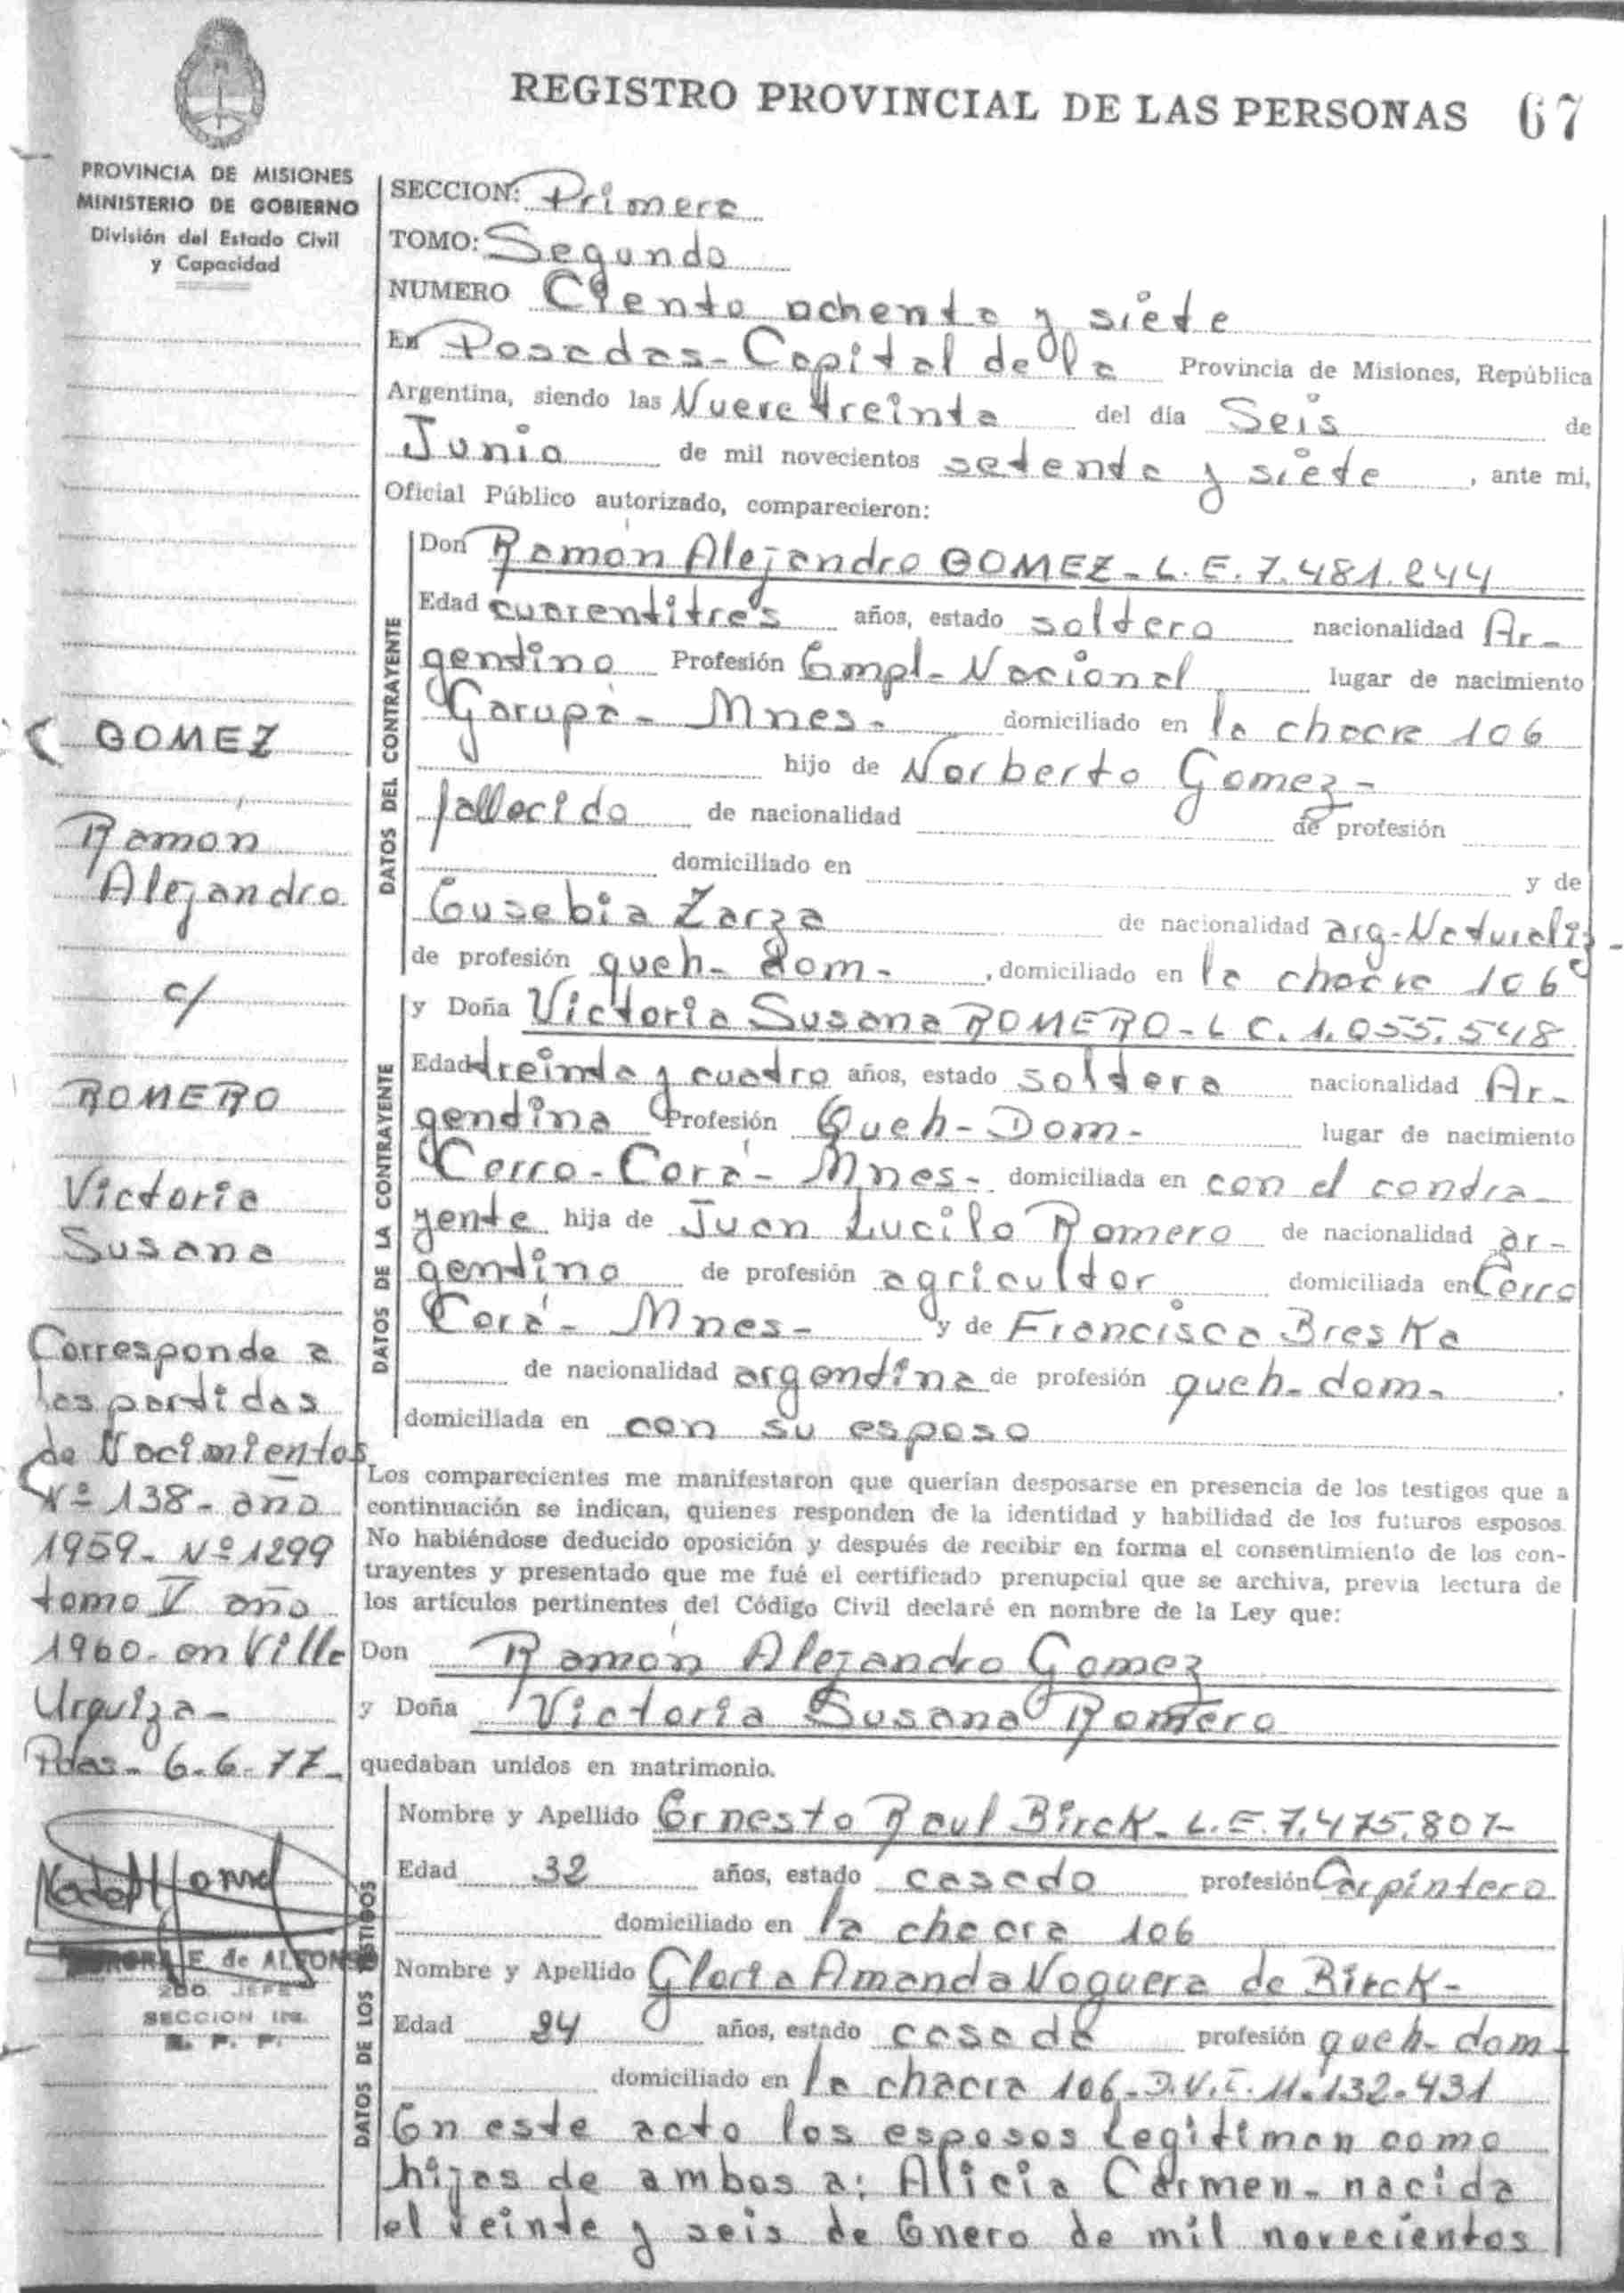 REGISTRO PROVINCIAL DE LAS PERSONAS 67
PROVINCIA DE MISIONES
MINISTERIO DE GOBIERNO
División del Estado Civil
y Capacidad
SECCION: Primera
TOMO: Segundo
NUMERO Ciento ochenta y siete
En Posadas - Capital de la Provincia de Misiones, República
Argentina, siendo las Nueve treinta del día Seis de
Junio de mil novecientos setenta y siete, ante mi,
Oficial Público autorizado, comparecieron:
DATOS DEL CONTRAYENTE
Don Ramón Alejandro GOMEZ - L. E. 7.481.244
Edad cuarentitrés años, estado soltero nacionalidad Ar-
gentino Profesión Empl- Nacional lugar de nacimiento
Garupá - Mnes - domiciliado en la chacra 106
hijo de Norberto Gomez -
fallecido de nacionalidad de profesión
domiciliado en y de
Eusebia Zarza de nacionalidad arg-Naturaliz-
de profesión queh- dom-, domiciliado en la chacra 106
DATOS DE LA CONTRAYENTE
y Doña Victoria Susana ROMERO - L C. 1.055.548
Edad treinta y cuatro años, estado soltera nacionalidad Ar-
gentina Profesión Queh - Dom - lugar de nacimiento
Cerro - Corá - Mnes - domiciliada en con el contra-
yente hija de Juan Lucilo Romero de nacionalidad ar-
gentino de profesión agricultor domiciliada en Cerro
Corá - Mnes - y de Francisca Breska
de nacionalidad argentina de profesión queh- dom-
domiciliada en con su esposo
Los comparecientes me manifestaron que querían desposarse en presencia de los testigos que a
continuación se indican, quienes responden de la identidad y habilidad de los futuros esposos.
No habiéndose deducido oposición y después de recibir en forma el consentimiento de los con-
trayentes y presentado que me fué el certificado prenupcial que se archiva, previa lectura de
los artículos pertinentes del Código Civil declaré en nombre de la Ley que:
Don Ramón Alejandro Gomez
y Doña Victoria Susana Romero
quedaban unidos en matrimonio.
DATOS DE LOS TESTIGOS
Nombre y Apellido Ernesto Raul Birck - L. E. 7.475.807-
Edad 32 años, estado casado profesión Carpintero
domiciliado en la chacra 106
Nombre y Apellido Gloria Amanda Noguera de Birck -
Edad 24 años, estado casada profesión queh- dom-
domiciliado en la chacra 106 - D.N.I. 11.132.431
En este acto los esposos legitiman como
hijos de ambos a: Alicia Carmen - nacida
el veinte y seis de Enero de mil novecientos
GOMEZ
Ramón
Alejandro
c/
ROMERO
Victoria
Susana
Corresponde a
las partidas
de Nacimientos
Nº 138 - año
1959 - Nº 1299
tomo V año
1960 - en Villa
Urquiza -
Pdas - 6-6-77-
E. de ALFONSO
2do. JEFE
SECCION INS.
R. P. P.